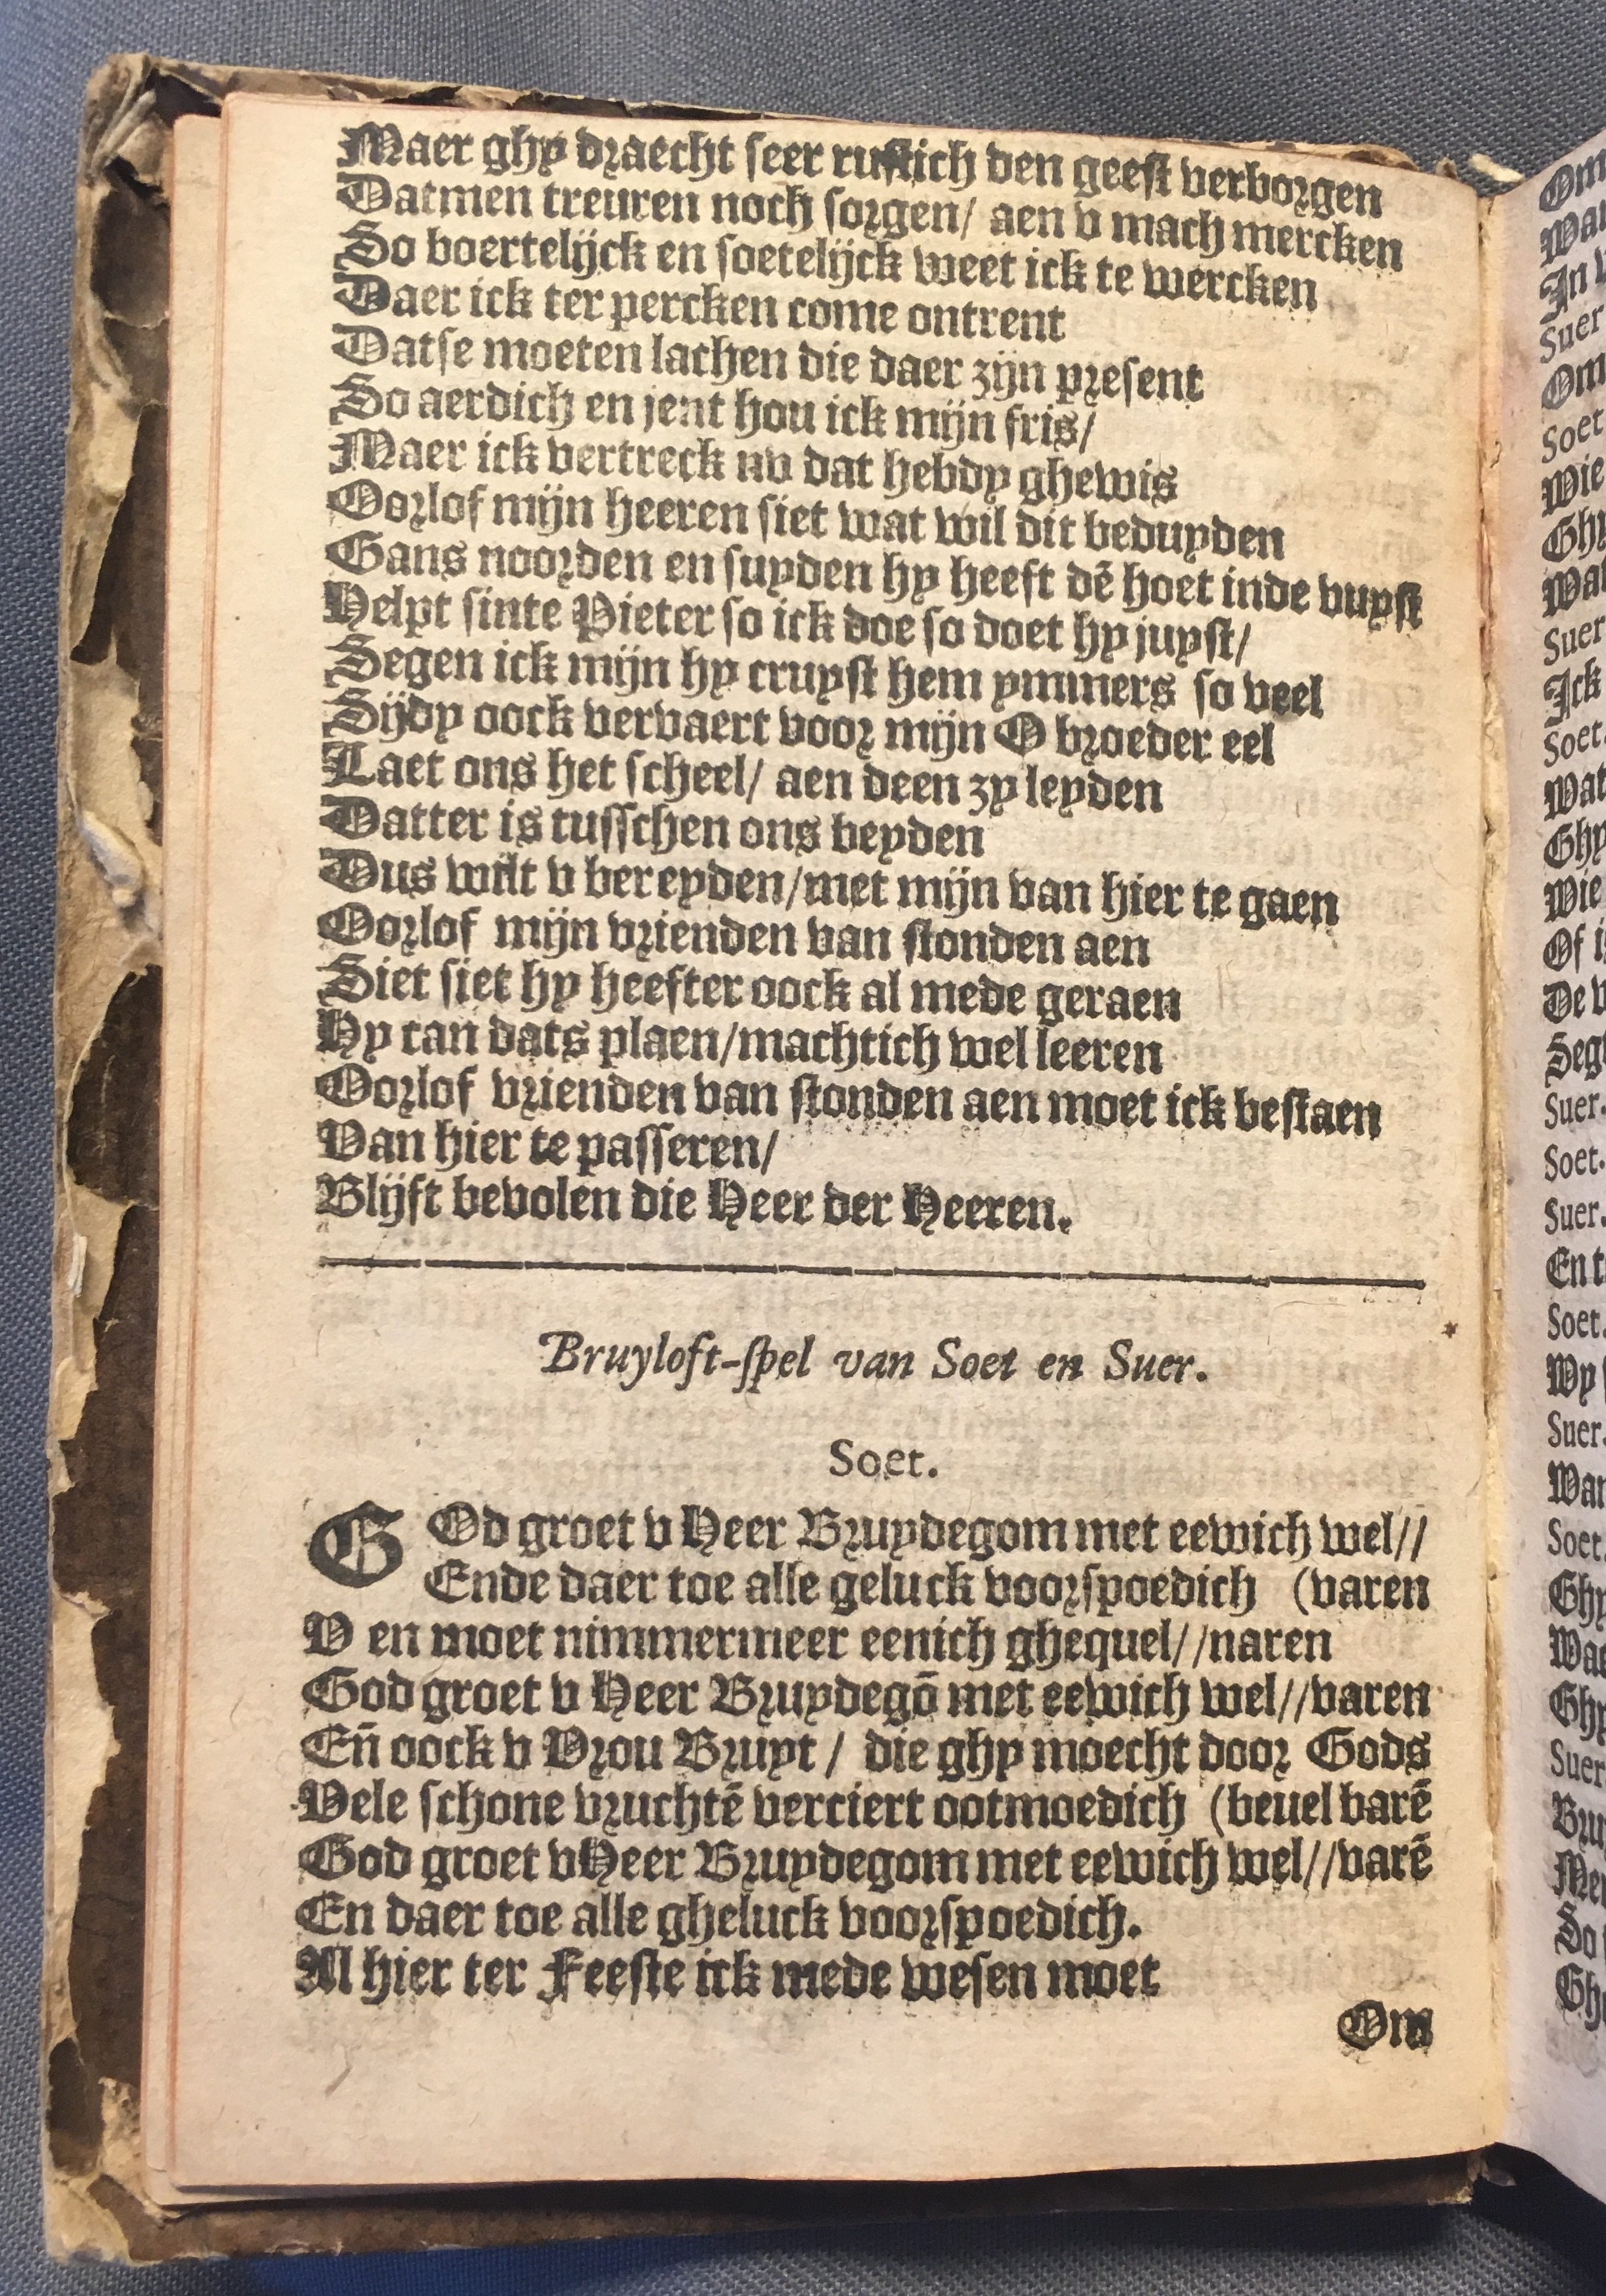 Maer ghy draecht seer rustich den geest verborgen
Datmen treuren noch sorgen/ aen v mach mercken
So boertelijck en soetelijck weet ick te wercken
Daer ick ter percken come ontrent
Datse moeten lachen die daer zijn present
So aerdich en jent hou ick mijn fris/
Maer ick vertreck nv dat hebdy ghewis
Oorlof mijn heeren siet wat wil dit beduyden
Gans noorden en suyden hy heeft dē hoet inde vuyst
Helpt sinte Pieter so ick doe so doet hy juyst/
Segen ick mijn hy cruyst hem ymmers so veel
Sijdy oock vervaert voor mijn O broeder eel
Laet ons het scheel/ aen deen zy leyden
Datter is tusschen ons beyden
Dus wilt v bereyden/met mijn van hier te gaen
Oorlof mijn vrienden van stonden aen
Siet siet hy heefter oock al mede geraen
Hy can dats plaen/machtich wel leeren
Oorlof vrienden van stonden aen moet ick bestaen
Van hier te passeren/
Blijft bevolen die Heer der Heeren.
Bruyloft-spel van Soet en Suer.
Soet.
GOd groet v Heer Bruydegom met eewich wel//
Ende daer toe alle geluck voorspoedich (varen
V en moet nimmermeer eenich ghequel//naren
God groet v Heer Bruydegō met eewich wel//varen
Eñ oock v Vrou Bruyt / die ghy moecht door Gods
Vele schone vruchtē verciert ootmoedich (beuel barē
God groet v Heer Bruydegom met eewich wel//varē
En daer toe alle gheluck voorspoedich.
Al hier ter Feeste ick mede wesen moet
Om
Om
In
Suer
Om
Soet
Wie
Ghy
Suer
Ick
Soet.
Wat
Ghy
Wie
Of
De
Suer.
Soet.
Suer.
En
Soet.
Wy
Suer.
Soet.
Suer
So